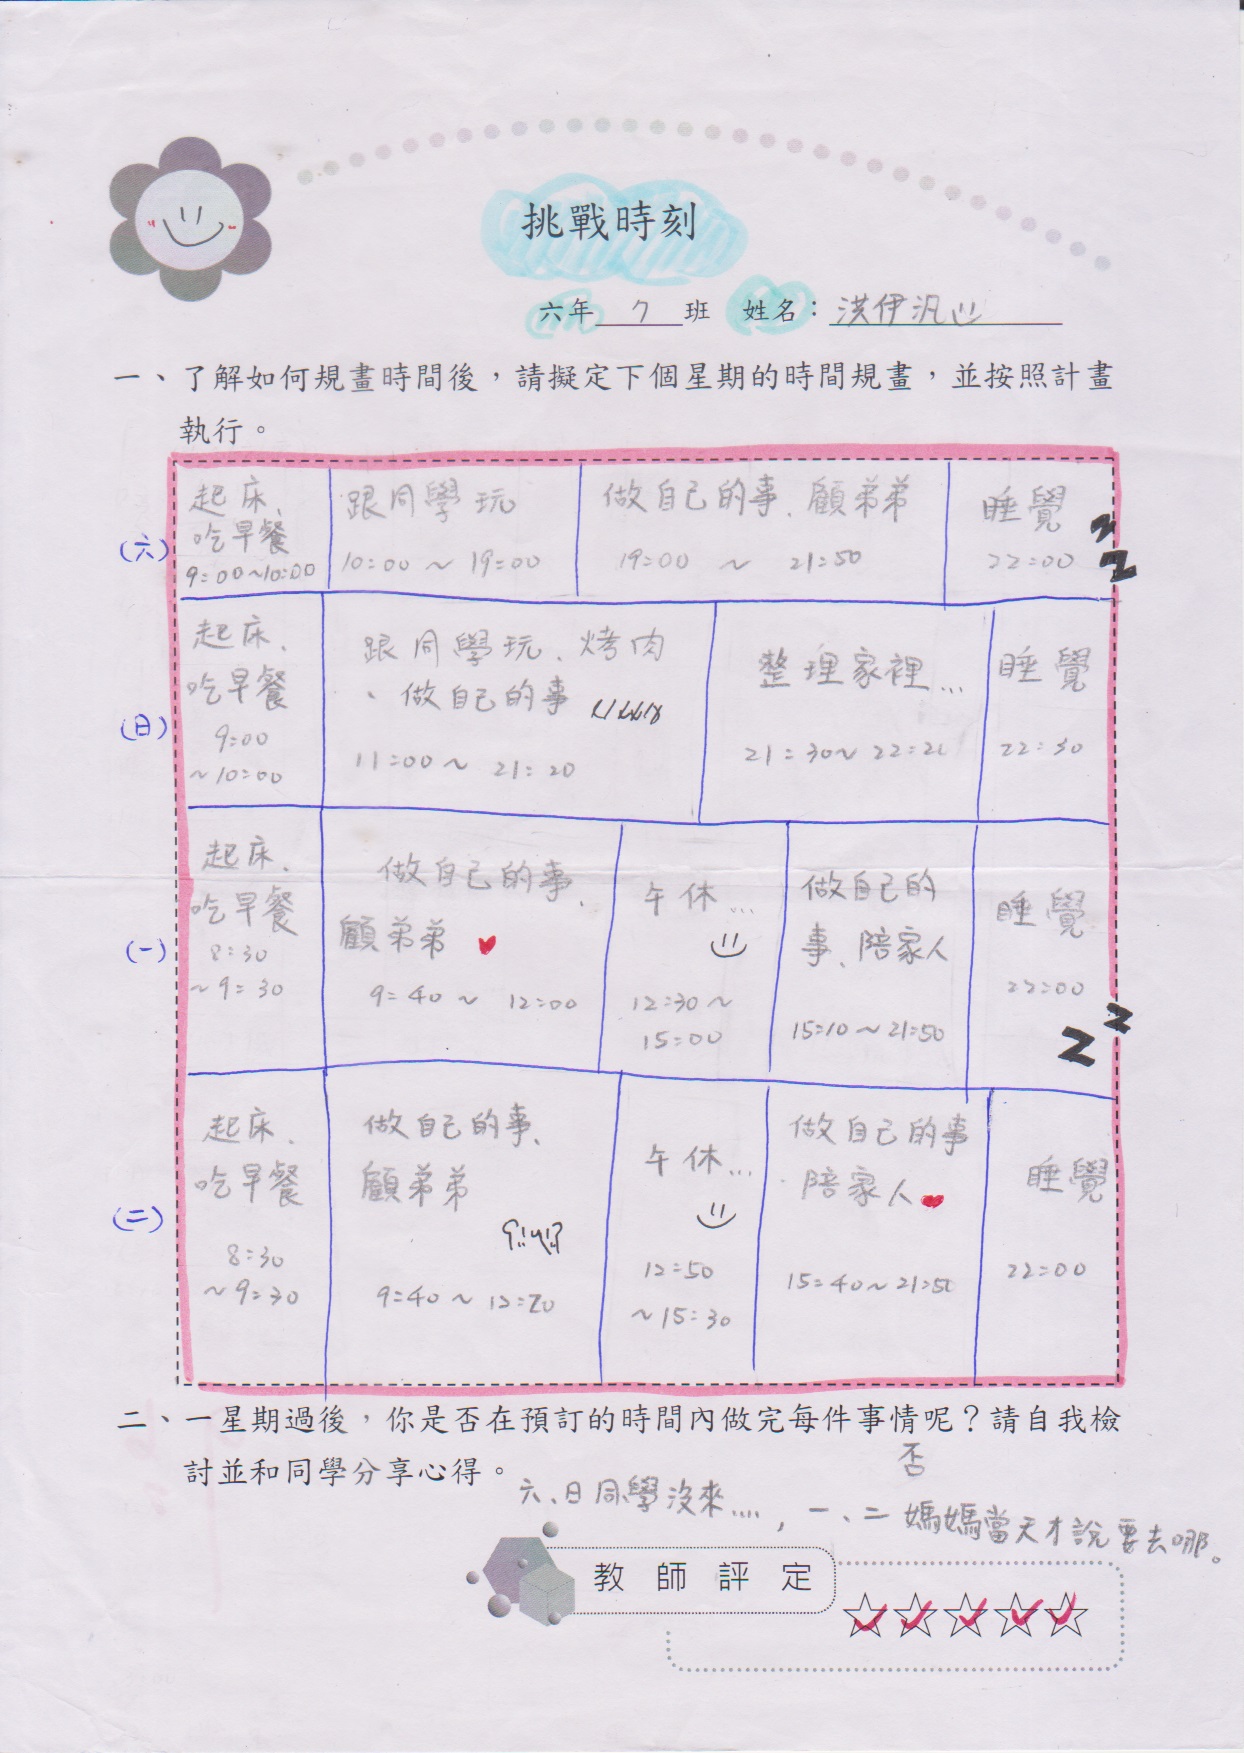 挑戰時刻
六年 7 班 姓名：洪伊汎
一、了解如何規畫時間後，請擬定下個星期的時間規畫，並按照計畫
執行。
(六)
起床、
吃早餐
9:00~10:00
跟同學玩
10:00 ~ 19:00
做自己的事、顧弟弟
19:00 ~ 21:50
睡覺
22:00
zz
(日)
起床、
吃早餐
9:00
~10:00
跟同學玩、烤肉
、做自己的事
11:00 ~ 21:20
整理家裡...
21:30~ 22:20
睡覺
22:30
(一)
起床、
吃早餐
8:30
~9:30
做自己的事、
顧弟弟
9:40 ~ 12:00
午休...
12:30 ~
15:00
做自己的
事、陪家人
15:10 ~ 21:50
睡覺
22:00
zz
(二)
起床、
吃早餐
8:30
~9:30
做自己的事、
顧弟弟
9:40 ~ 12:20
午休...
12:50
~15:30
做自己的事
、陪家人
15:40 ~ 21:50
睡覺
22:00
二、一星期過後，你是否在預訂的時間內做完每件事情呢？請自我檢
討並和同學分享心得。
否
六、日同學沒來....，一、二媽媽當天才說要去哪。
教師評定